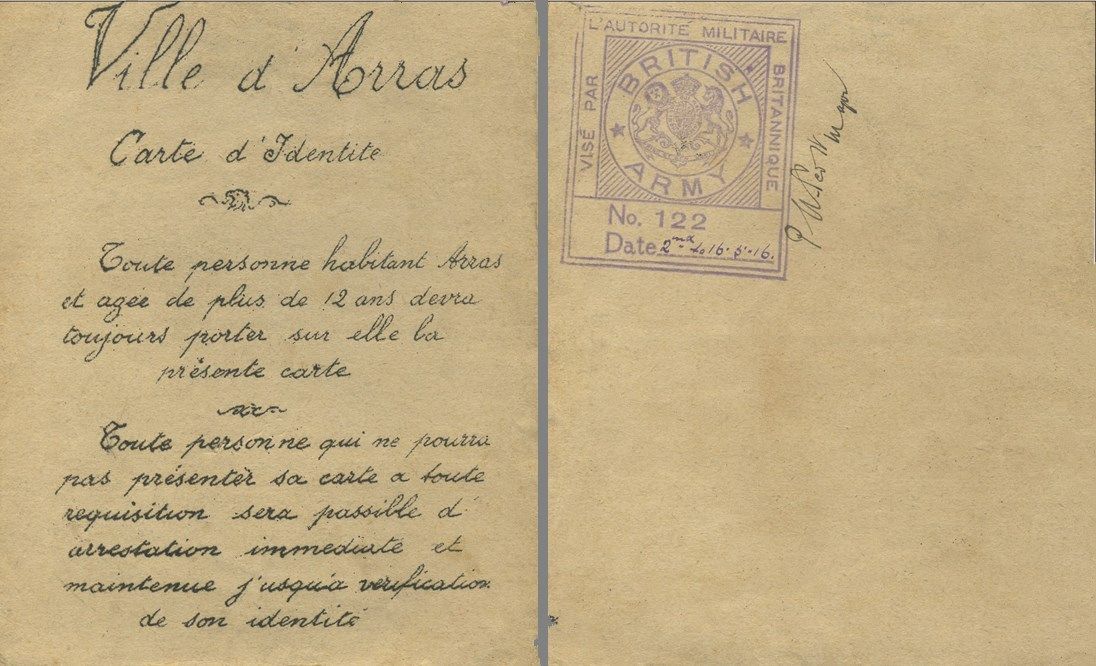 Ville d'Arras
Carte d'Identite
Toute personne habitant Arras
et agée de plus de 12 ans devra
toujours porter sur elle la
présente carte
Toute personne qui ne pourra
pas présenter sa carte a toute
requisition sera passible d'
arrestation immediate et
maintenue j'usqu'a verification
de son identité
VISÉ PAR L'AUTORITÉ MILITAIRE BRITANNIQUE
BRITISH
ARMY
No. 122
Date 2nd to 16-5-16.
Major